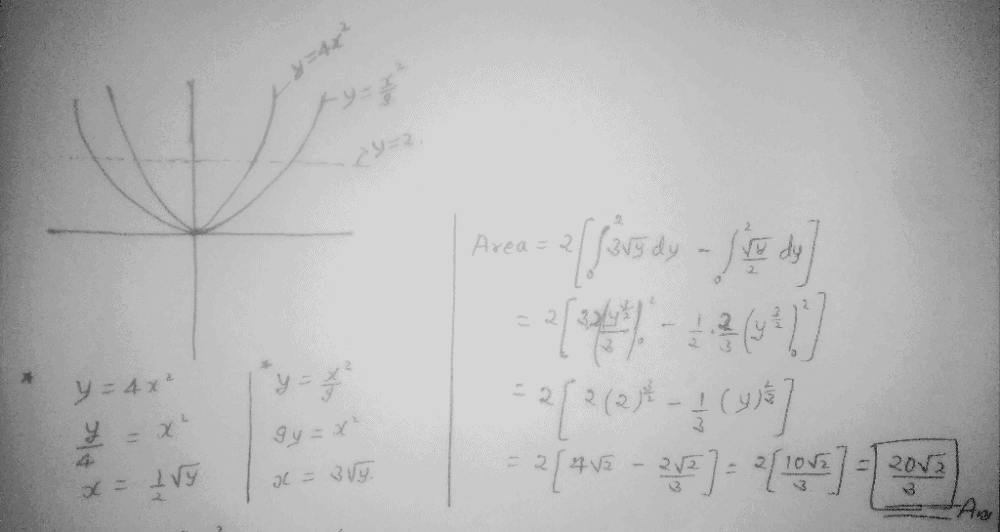 y=4x²
y=x²/9
y=2
* y = 4x²
y/4 = x²
x = 1/2 √y
* y = x²/9
9y = x²
x = 3√y
Area = 2[∫₀² 3√y dy - ∫₀² √y/2 dy]
= 2[3·2(y^{3/2}/3)₀² - 1/2 · 2/3 (y^{3/2})₀²]
= 2[2(2)^{3/2} - 1/3 (y)^{3/2}]
= 2[4√2 - 2√2/3] = 2[10√2/3] = 20√2/3